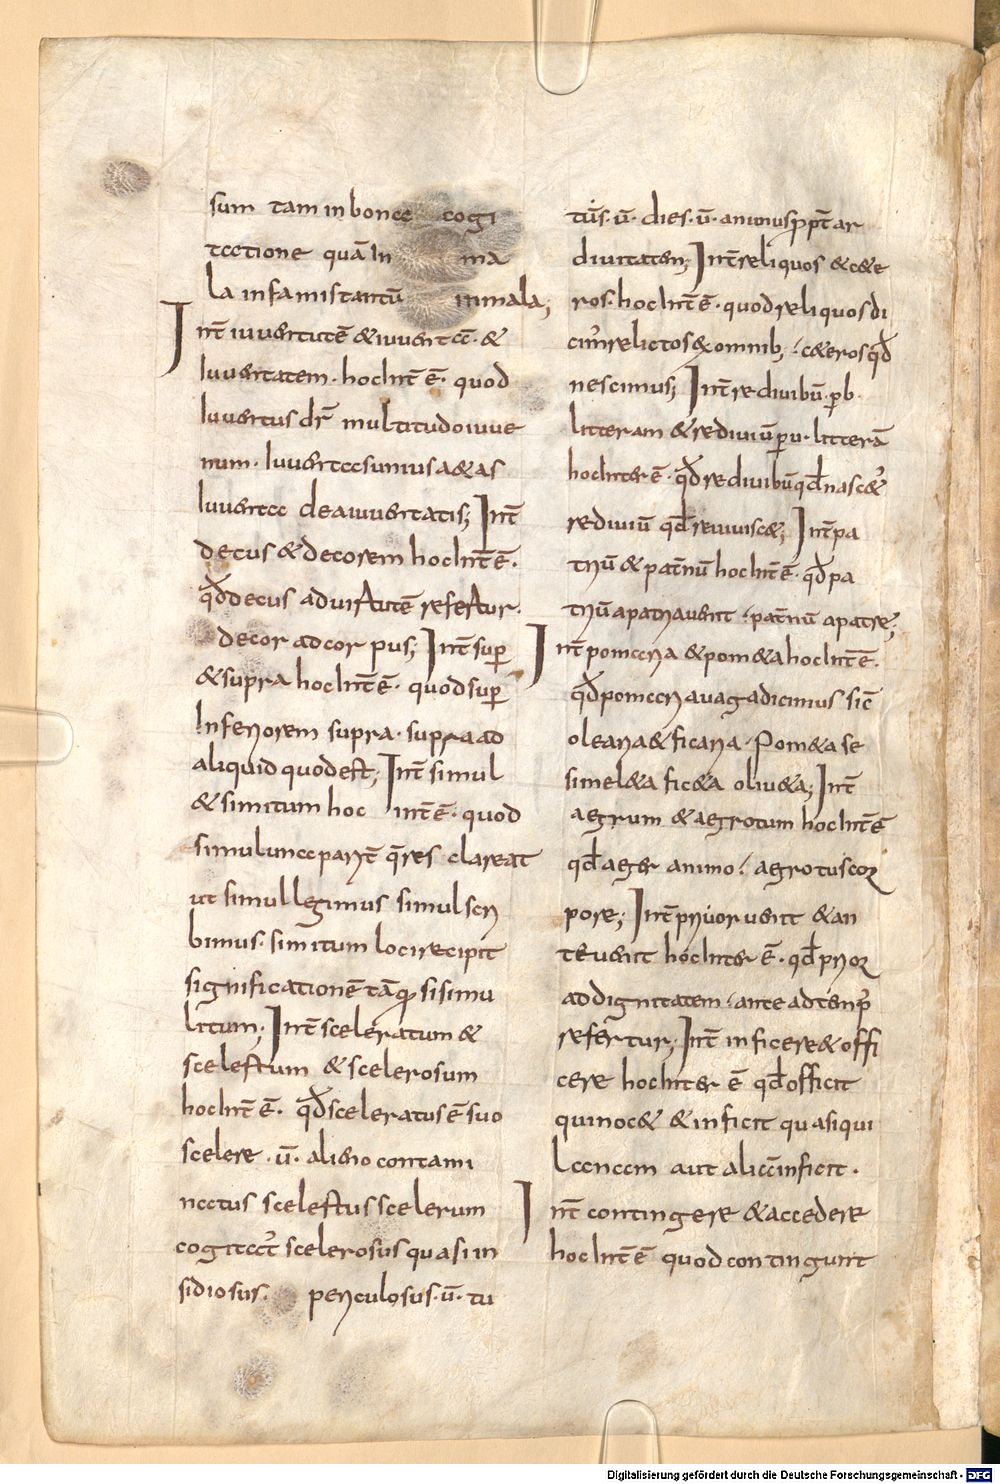 sum tam in bonae cogi
tatione quā in ma
la infamis tantū inmala;
Int̄ iuuentutē & iuuentā · &
Iuuentatem · hoc int̄ ē · quod
Iuuentus dr̄ multitudo iuue
num · Iuuenta cunius a&as
Iuuenta dea iuuentatis; Int̄
decus & decorem hoc int̄ ē ·
qđ decus ad uirtutē refertur ·
decor ad cor pus; Int̄ sup̄
& supra hoc int̄ ē · quod sup̄
Inferiorem supra · supra ad
aliquid quod est; Int̄ simul
& simitum hoc int̄ ē · quod
simul una parit̄ q̄ res clareat
ut simul legimus simul scri
bimus · simitum loci recipit
significationē tāq̄ si simu
litum; Int̄ sceleratum &
scelestum & scelerosum
hoc int̄ ē · qđ sceleratus ē suo
scelere · ū · alieno contami
natus scelestus scelerum
cogitat̄ scelerosus quasi in
sidiosus · periculosus · ū · tu
tus · ū · dies · ū · animus ꝓpt̄ ar
diuitatem; Int̄ reliquos & c&e
ros · hoc int̄ ē · quod reliquos di
cim̄ relictos ex omnib; · c&eros qđ
nescimus; Int̄ rediuibū · ꝑ b ·
litteram & rediuiū ꝑ u · litterā
hoc inter ē · qđ rediuibū qđ nasc&ᷣ
rediuiū qđ reuiuisc&; Int̄ pa
triū & pat̄nū hoc int̄ ē · qđ pa
triū a patria uenit · pat̄nū a patre;
Int̄ pomaria & pom&a hoc int̄ ē ·
qđ pomaria uaga dicimus sic̄
olearia & ficaria · Pom&a se
simel&a fic&a oliu&a; Int̄
aegrum & aegrotum hoc int̄ ē
qđ aeger animo · aegrotus cor
pore; Int̄ prior uenit & an
te uenit hoc inter ē · qđ prior
ad dignitatem · ante ad temp̄
refertur; Int̄ inficere & offi
cere hoc inter ē qđ officit
qui noc& & inficit quasi qui
Lacnam aut aliā inficit ·
Int̄ contingere & accedere
hoc int̄ ē quod contingunt
Digitalisierung gefördert durch die Deutsche Forschungsgemeinschaft - DFG